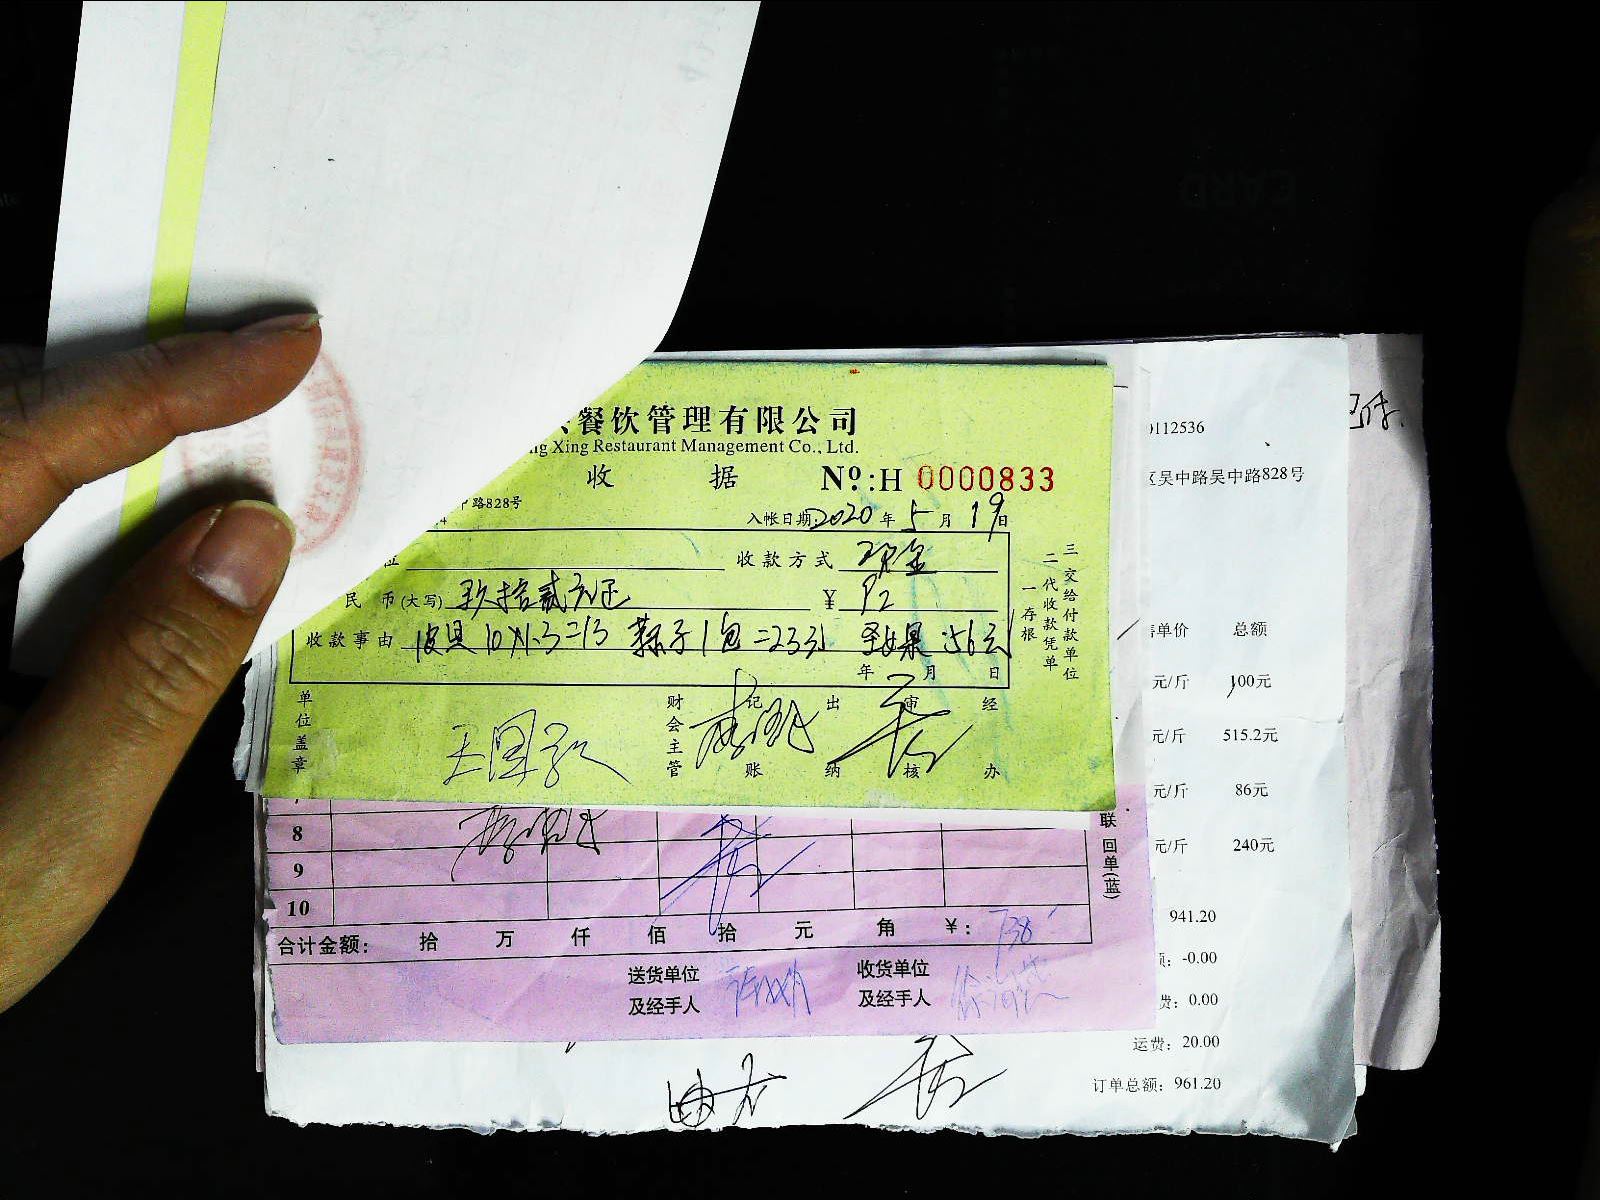 餐饮管理有限公司
ng Xing Restaurant Management Co., Ltd.
收 据 Nº:H 0000833
中路828号
入帐日期:2020年5月19日
位 收款方式 现金
民 币(大写) 玖拾贰元正 ¥ 92
收款事由 皮具10×1.3=13 蒜子1包=23元 圣女果:56元
年 月 日
一存根
二代收款凭单
三交给付款单位
单位盖章
财会主管
记账
出纳
审核
经办
8
9
10
联
回单(蓝)
合计金额: 拾 万 仟 佰 拾 元 角 ¥: 738
送货单位 收货单位
及经手人 及经手人
0112536
区吴中路吴中路828号
售单价 总额
元/斤 100元
元/斤 515.2元
元/斤 86元
元/斤 240元
941.20
: -0.00
费: 0.00
运费: 20.00
订单总额: 961.20